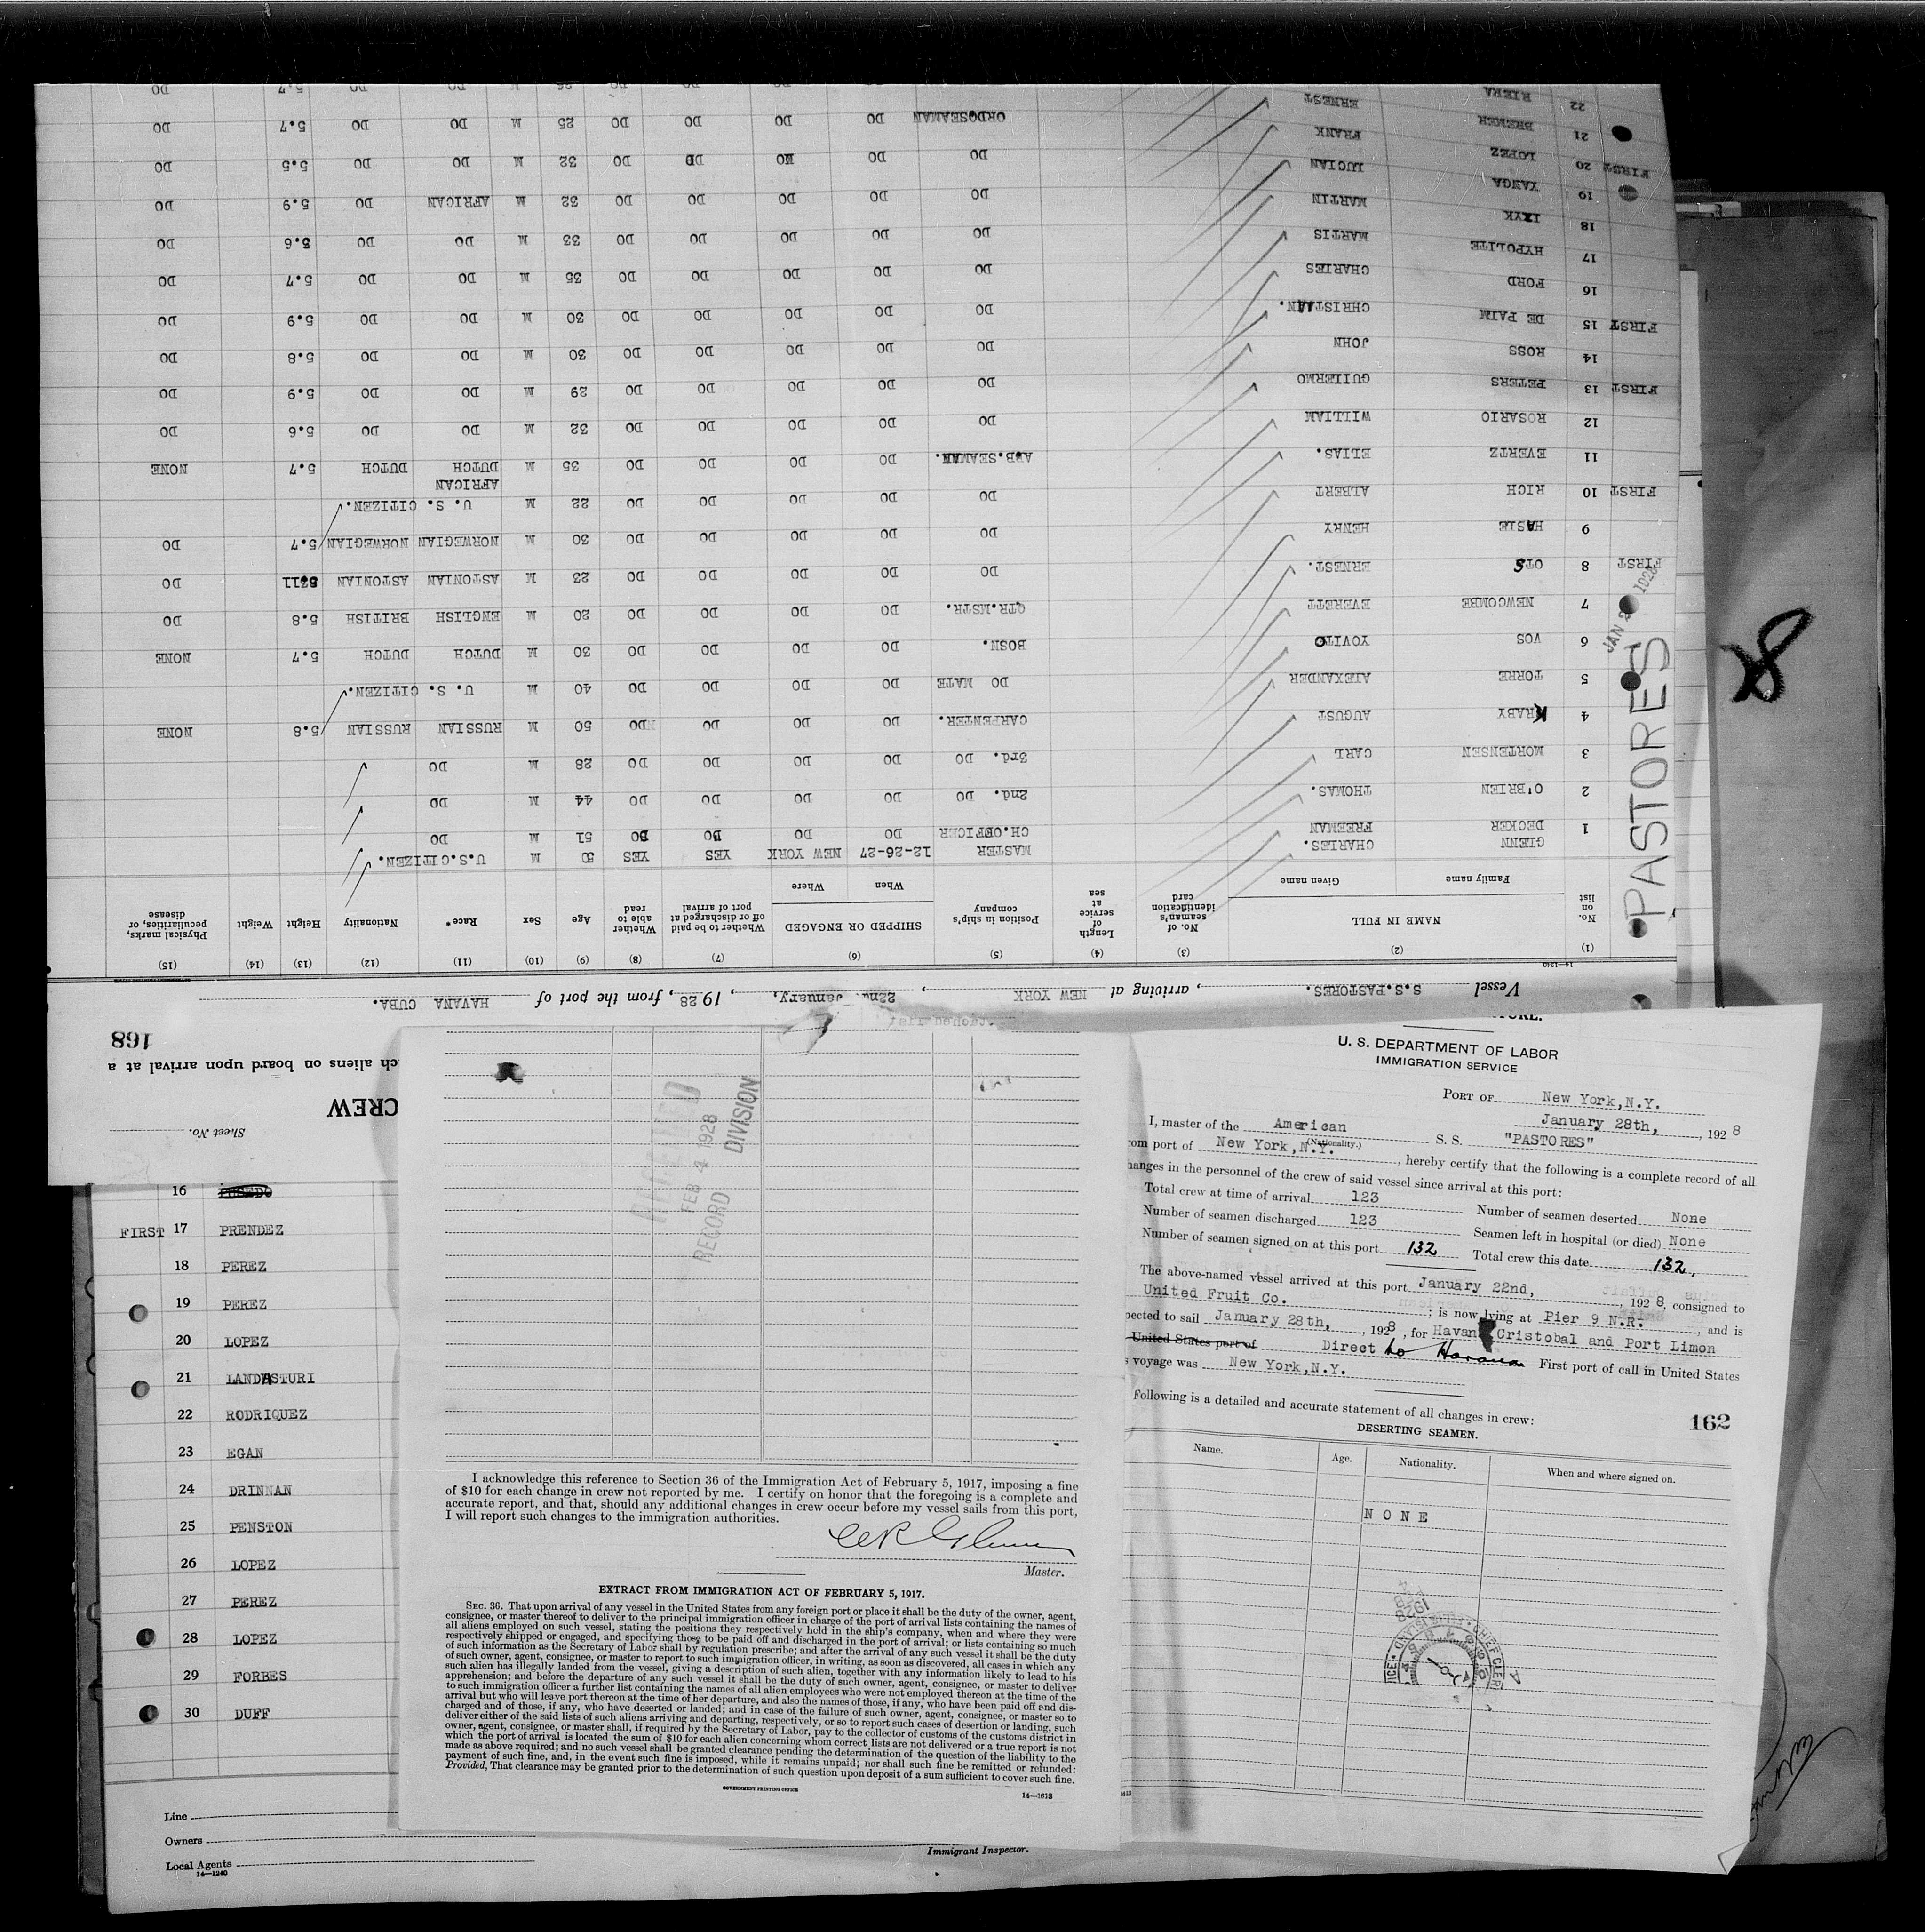 CREW
Sheet No.
ch aliens on board upon arrival at a
168
Vessel S.S.PASTORES. , arriving at NEW YORK , 22nd. January, , 1928, from the port of HAVANA CUBA.
14-1240
(1) (2) (3) (4) (5) (6) (7) (8) (9) (10) (11) (12) (13) (14) (15)
No. on list NAME IN FULL Family name Given name No. of seaman's identification card Length of service at sea Position in ship's company SHIPPED OR ENGAGED When Where Whether to be paid off or discharged at port of arrival Whether able to read Age Sex Race* Nationality Height Weight Physical marks, peculiarities, or disease
GLENN CHARLES. MASTER 12-26-27 NEW YORK YES YES 50 M U.S.CITIZEN.
1 DECKER FREEMAN CH.OFFICER DO DO DO DO 51 M DO
2 O'BRIEN THOMAS. 2nd. DO DO DO DO DO 44 M DO
3 MORTENSEN CARL 3rd. DO DO DO DO DO 28 M DO
4 KRABY AUGUST CARPENTER. DO DO DO DO 50 M RUSSIAN RUSSIAN 5.8 NONE
5 TORRE ALEXANDER DO MATE DO DO DO DO 40 M U. S. CITIZEN.
6 VOS YOVITO BOSN. DO DO DO DO 30 M DUTCH DUTCH 5.7 NONE
7 NEWCOMBE EVERETT QTR.MSTR. DO DO DO DO 20 M ENGLISH BRITISH 5.8 DO
FIRST 8 OTS ERNEST. DO DO DO DO DO 23 M ASTONIAN ASTONIAN DO
9 HASLE HENRY DO DO DO DO DO 30 M NORWEGIAN NORWEGIAN 5.7 DO
FIRST 10 RICH ALBERT DO DO DO DO DO 22 M U. S. CITIZEN.
11 EVERTZ ELIAS. A.B.SEAMAN. DO DO DO DO 35 M AFRICAN DUTCH DUTCH 5.7 NONE
12 ROSARIO WILLIAM DO DO DO DO DO 32 M DO DO 5.6 DO
FIRST 13 PETERS GUILERMO DO DO DO DO DO 29 M DO DO 5.9 DO
14 ROSS JOHN DO DO DO DO DO 30 M DO DO 5.8 DO
FIRST 15 DE PALM CHRISTIAAN. DO DO DO DO DO 30 M DO DO 5.9 DO
16 FORD CHARLES DO DO DO DO DO 35 M DO DO 5.7 DO
17 HYPOLITE MARTIS DO DO DO DO DO 33 M DO DO 5.6 DO
18 IZYK MARTIN DO DO DO DO DO 32 M AFRICAN DO 5.9 DO
19 YANGA LUCIAN DO DO DO DO 32 M DO DO 5.5 DO
FIRST 20 LOPEZ FRANK ORD.SEAMAN DO DO DO DO 25 M DO DO 5.7 DO
21 BREMER ERNEST DO DO DO DO 26 M DO DO 5.7 DO
22 RIERA
PASTORES
JAN 1928
8
16
FIRST 17 PRENDEZ
18 PEREZ
19 PEREZ
20 LOPEZ
21 LANDASTURI
22 RODRIQUEZ
23 EGAN
24 DRINNAN
25 PENSTON
26 LOPEZ
27 PEREZ
28 LOPEZ
29 FORBES
30 DUFF
Line
Owners
Local Agents
14—1240
Immigrant Inspector.
RECEIVED
FEB 4 1928
RECORD DIVISION
I acknowledge this reference to Section 36 of the Immigration Act of February 5, 1917, imposing a fine
of $10 for each change in crew not reported by me. I certify on honor that the foregoing is a complete and
accurate report, and that, should any additional changes in crew occur before my vessel sails from this port,
I will report such changes to the immigration authorities.
Master.
EXTRACT FROM IMMIGRATION ACT OF FEBRUARY 5, 1917.
SEC. 36. That upon arrival of any vessel in the United States from any foreign port or place it shall be the duty of the owner, agent,
consignee, or master thereof to deliver to the principal immigration officer in charge of the port of arrival lists containing the names of
all aliens employed on such vessel, stating the positions they respectively hold in the ship's company, when and where they were
respectively shipped or engaged, and specifying those to be paid off and discharged in the port of arrival; or lists containing so much
of such information as the Secretary of Labor shall by regulation prescribe; and after the arrival of any such vessel it shall be the duty
of such owner, agent, consignee, or master to report to such immigration officer, in writing, as soon as discovered, all cases in which any
such alien has illegally landed from the vessel, giving a description of such alien, together with any information likely to lead to his
apprehension; and before the departure of any such vessel it shall be the duty of such owner, agent, consignee, or master to deliver
to such immigration officer a further list containing the names of all alien employees who were not employed thereon at the time of the
arrival but who will leave port thereon at the time of her departure, and also the names of those, if any, who have been paid off and dis-
charged and of those, if any, who have deserted or landed; and in case of the failure of such owner, agent, consignee, or master so to
deliver either of the said lists of such aliens arriving and departing, respectively, or so to report such cases of desertion or landing, such
owner, agent, consignee, or master shall, if required by the Secretary of Labor, pay to the collector of customs of the customs district in
which the port of arrival is located the sum of $10 for each alien concerning whom correct lists are not delivered or a true report is not
made as above required; and no such vessel shall be granted clearance pending the determination of the question of the liability to the
payment of such fine, and, in the event such fine is imposed, while it remains unpaid; nor shall such fine be remitted or refunded:
Provided, That clearance may be granted prior to the determination of such question upon deposit of a sum sufficient to cover such fine.
GOVERNMENT PRINTING OFFICE
14—1613
U. S. DEPARTMENT OF LABOR
IMMIGRATION SERVICE
PORT OF New York,N.Y.
January 28th, , 1928
I, master of the American S. S. "PASTORES"
(Nationality.)
rom port of New York,N.Y. , hereby certify that the following is a complete record of all
hanges in the personnel of the crew of said vessel since arrival at this port:
Total crew at time of arrival 123 Number of seamen deserted None
Number of seamen discharged 123 Seamen left in hospital (or died) None
Number of seamen signed on at this port 132 Total crew this date 132,
The above-named vessel arrived at this port January 22nd, , 1928, consigned to
United Fruit Co. ; is now lying at Pier 9 N.R. , and is
pected to sail January 28th, , 1928, for Havan Cristobal and Port Limon
United States port of Direct to Havana First port of call in United States
s voyage was New York,N.Y.
Following is a detailed and accurate statement of all changes in crew:
162
DESERTING SEAMEN.
Name. Age. Nationality. When and where signed on.
NONE
1928
CHIEF CLERK